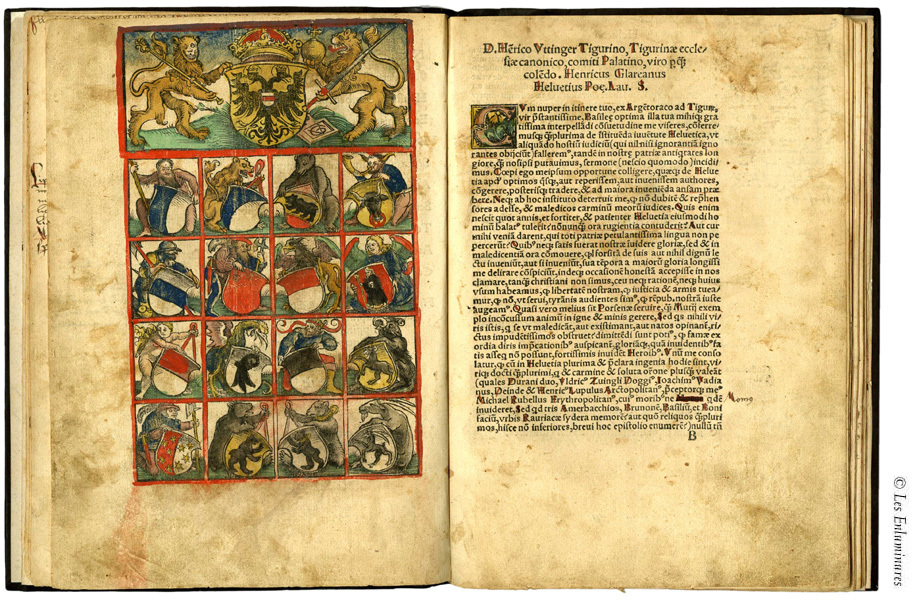 D. Hẽrico Vttinger Tigurino, Tigurinæ eccle-
siæ canonico, comiti Palatino, viro
colẽdo. Henricus Glareanus
Heluetius Poę. Lau. S.
CVm nuper in itinere tuo, ex Argẽtoraco ad
vir p̃stantissime, Basileę optima illa tua mihiq; gra
tissima interpellãdi cõsuetudine me viseres, cõferre-
musq; q̃plurima de istituẽda iuuẽtute Heluetica, vt
aliquãdo hostiũ iudiciũ (qui nil nisi ignorantiã igno
rantes obijciũt) tandẽ in nostrę patrię antiqtates lon
giore, q̃ nosipsi putauimus, sermone (nescio quomodo) incidi
mus. Cœpi ego meipsum opportune colligere, quæq; de Helue
tia apd' optimos aut reperissem, aut inuenissem authores,
cõgerere, posterisq; tradere, & ad maiora inueniẽda ansam præ
bere. Neq; ab hoc instituto deterruit me, q nõ dubitẽ & rephen
sores adesse, & maledicos carminũ meorũ iudices. Quis enim
nescit quot annis, et fortiter, & patienter Heluetia eiusmodi ho
minũ tulerit? nõnunq̃ ora rugientia contuderit? Aut cur
mihi veniã darent, qui toti patrię petulantissima lingua non pe
percerũt? neq; satis fuerat nostræ ĩuidere gloriæ, sed & in
maledicentia ora cõmouere,
ctu inueniũt, aut si inueniũt, sua tẽpora a maiorũ gloria longissi
me delirare cõspiciũt, indeq; occasionẽ honestã accepisse in nos
clamare, tanq̃ christiani non simus, ceu neq; rationẽ, neq; huius
vsum habeamus, q libertatẽ nostram, q iustitia & armis tuea-
mur, q nõ, vt serui, tyrãnis audientes q rẽpub. nostrã iuste
augeam'. Quasi vero melius sit Porsenæ seruire, q̃ Mutij exem
plo incõcussum animũ in igne & minis gerere. Sed
ris istis, q se vt maledicãt, aut existimant, aut natos opinant,
ctus
ordia diris auspicent, gloriãq;, quã inuidentib'
tis asseq nõ possunt, fortissimis inuidẽt Heroib'. me conso
latur, q cũ in Heluetia plurima & p̃clara ingenia hodie sint, vi-
riq; docti q̃plurimi, q & carmine & soluta orõne valeãt
(quales Durani duo, Vldric' Zuingli Doggi', Ioachim' Vadia
nus, Deinde & Hẽric' Lupulus Arctopolitan', p̃ceptorq; me'
Michael Rubellus Erythropolitan', cui' morib' ne Momo
inuideret, Sed qd tris Amerbacchios, Brunonẽ, Basiliũ, et Boni
faciũ, vrbis Rauriacæ sydera memorẽ? aut quo reliquos q̃pluri
mos, hisce nõ inferiores, breui hoc epistolio enumerẽ?) nullũ tñ
B
Momo
© Les Enluminures